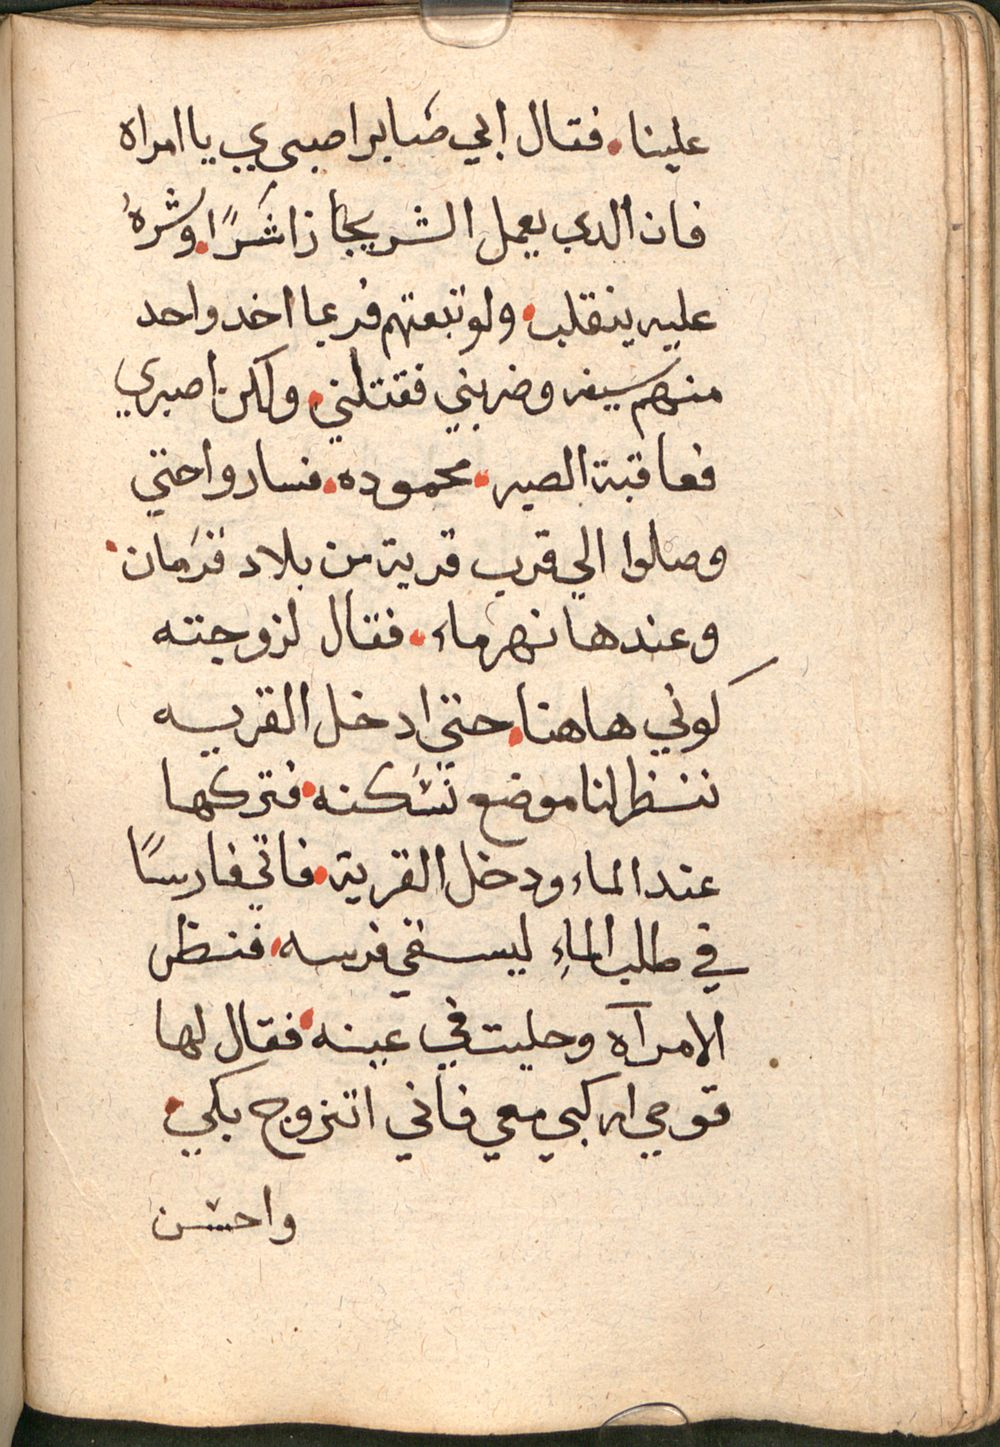 علينا. فقال ابي صابر اصبري يا امراه
فان الدي يعمل الشر يجازا شرًا. وشرهُ
عليه ينقلب. ولو تبعتهم فربما اخد واحد
منهم سيفه وضربني فقتلني. ولكن اصبري
فعاقبة الصبر. محموده. فساروا حتي
وصلوا الي قرب قرية من بلاد فرمان.
وعندها نهر ماء. فقال لزوجته
كوني هاهنا. حتي ادخل القريه
ننظر لنا موضع نسكنه. فتركها
عند الماء ودخل القرية. فاتي فارسًا
في طلب الماءِ ليسقي فرسه. فنظر
الامرآه وحليت في عينه. فقال لها
قومي اركبي معي فاني اتزوج بكي.
واحسن